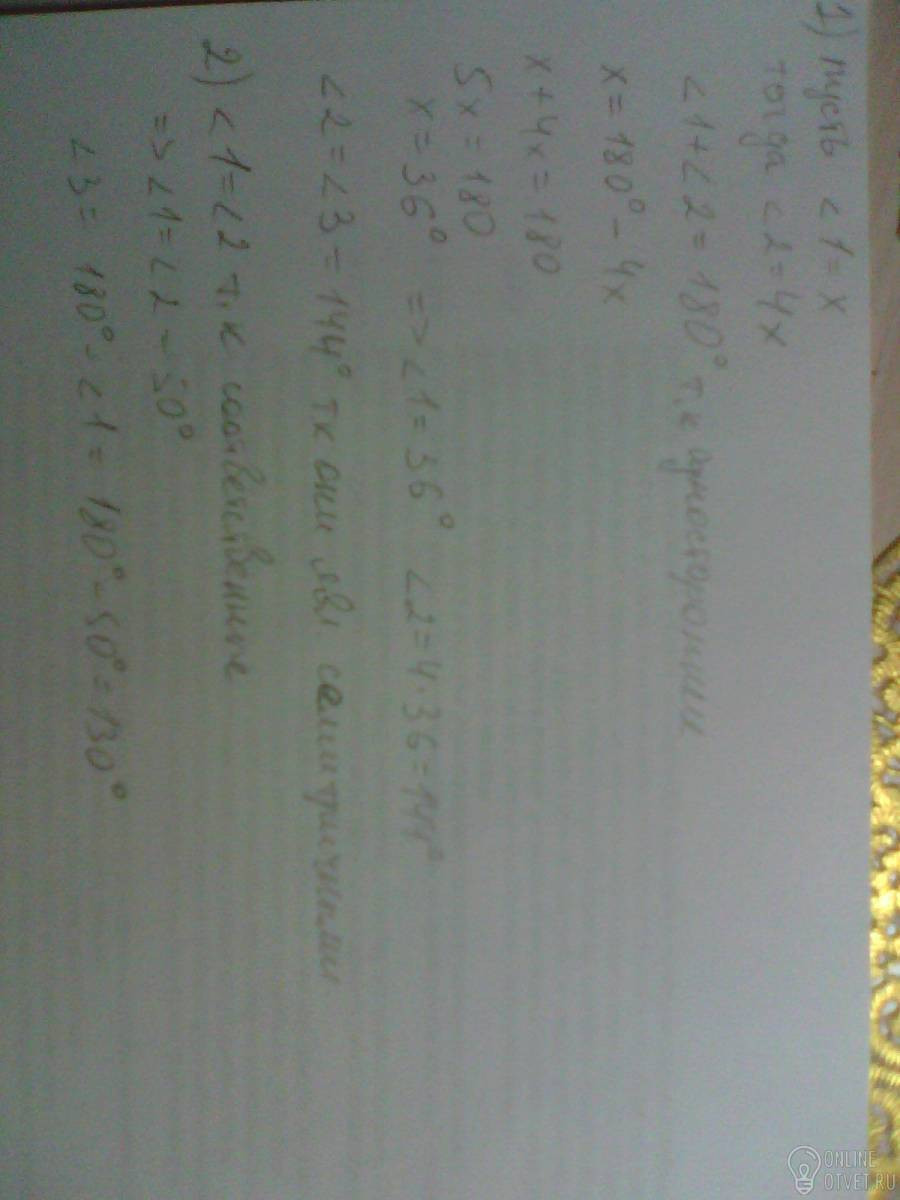 1) пусть <1=x
тогда <2=4x
<1+<2=180° т.к односторонии
x=180°-4x
x+4x=180
5x=180
x=36° => <1=36° <2=4·36=144°
<2=<3=144° тк они явл симтричными
2) <1=<2 т.к соответственные
=> <1=<2-50°
<3= 180°-<1=180°-50°=130°
ONLINE
OTVET.RU